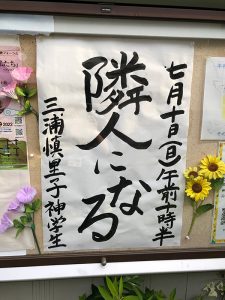 七月十日(日)午前十時半
隣人になる
三浦慎里子 神学生